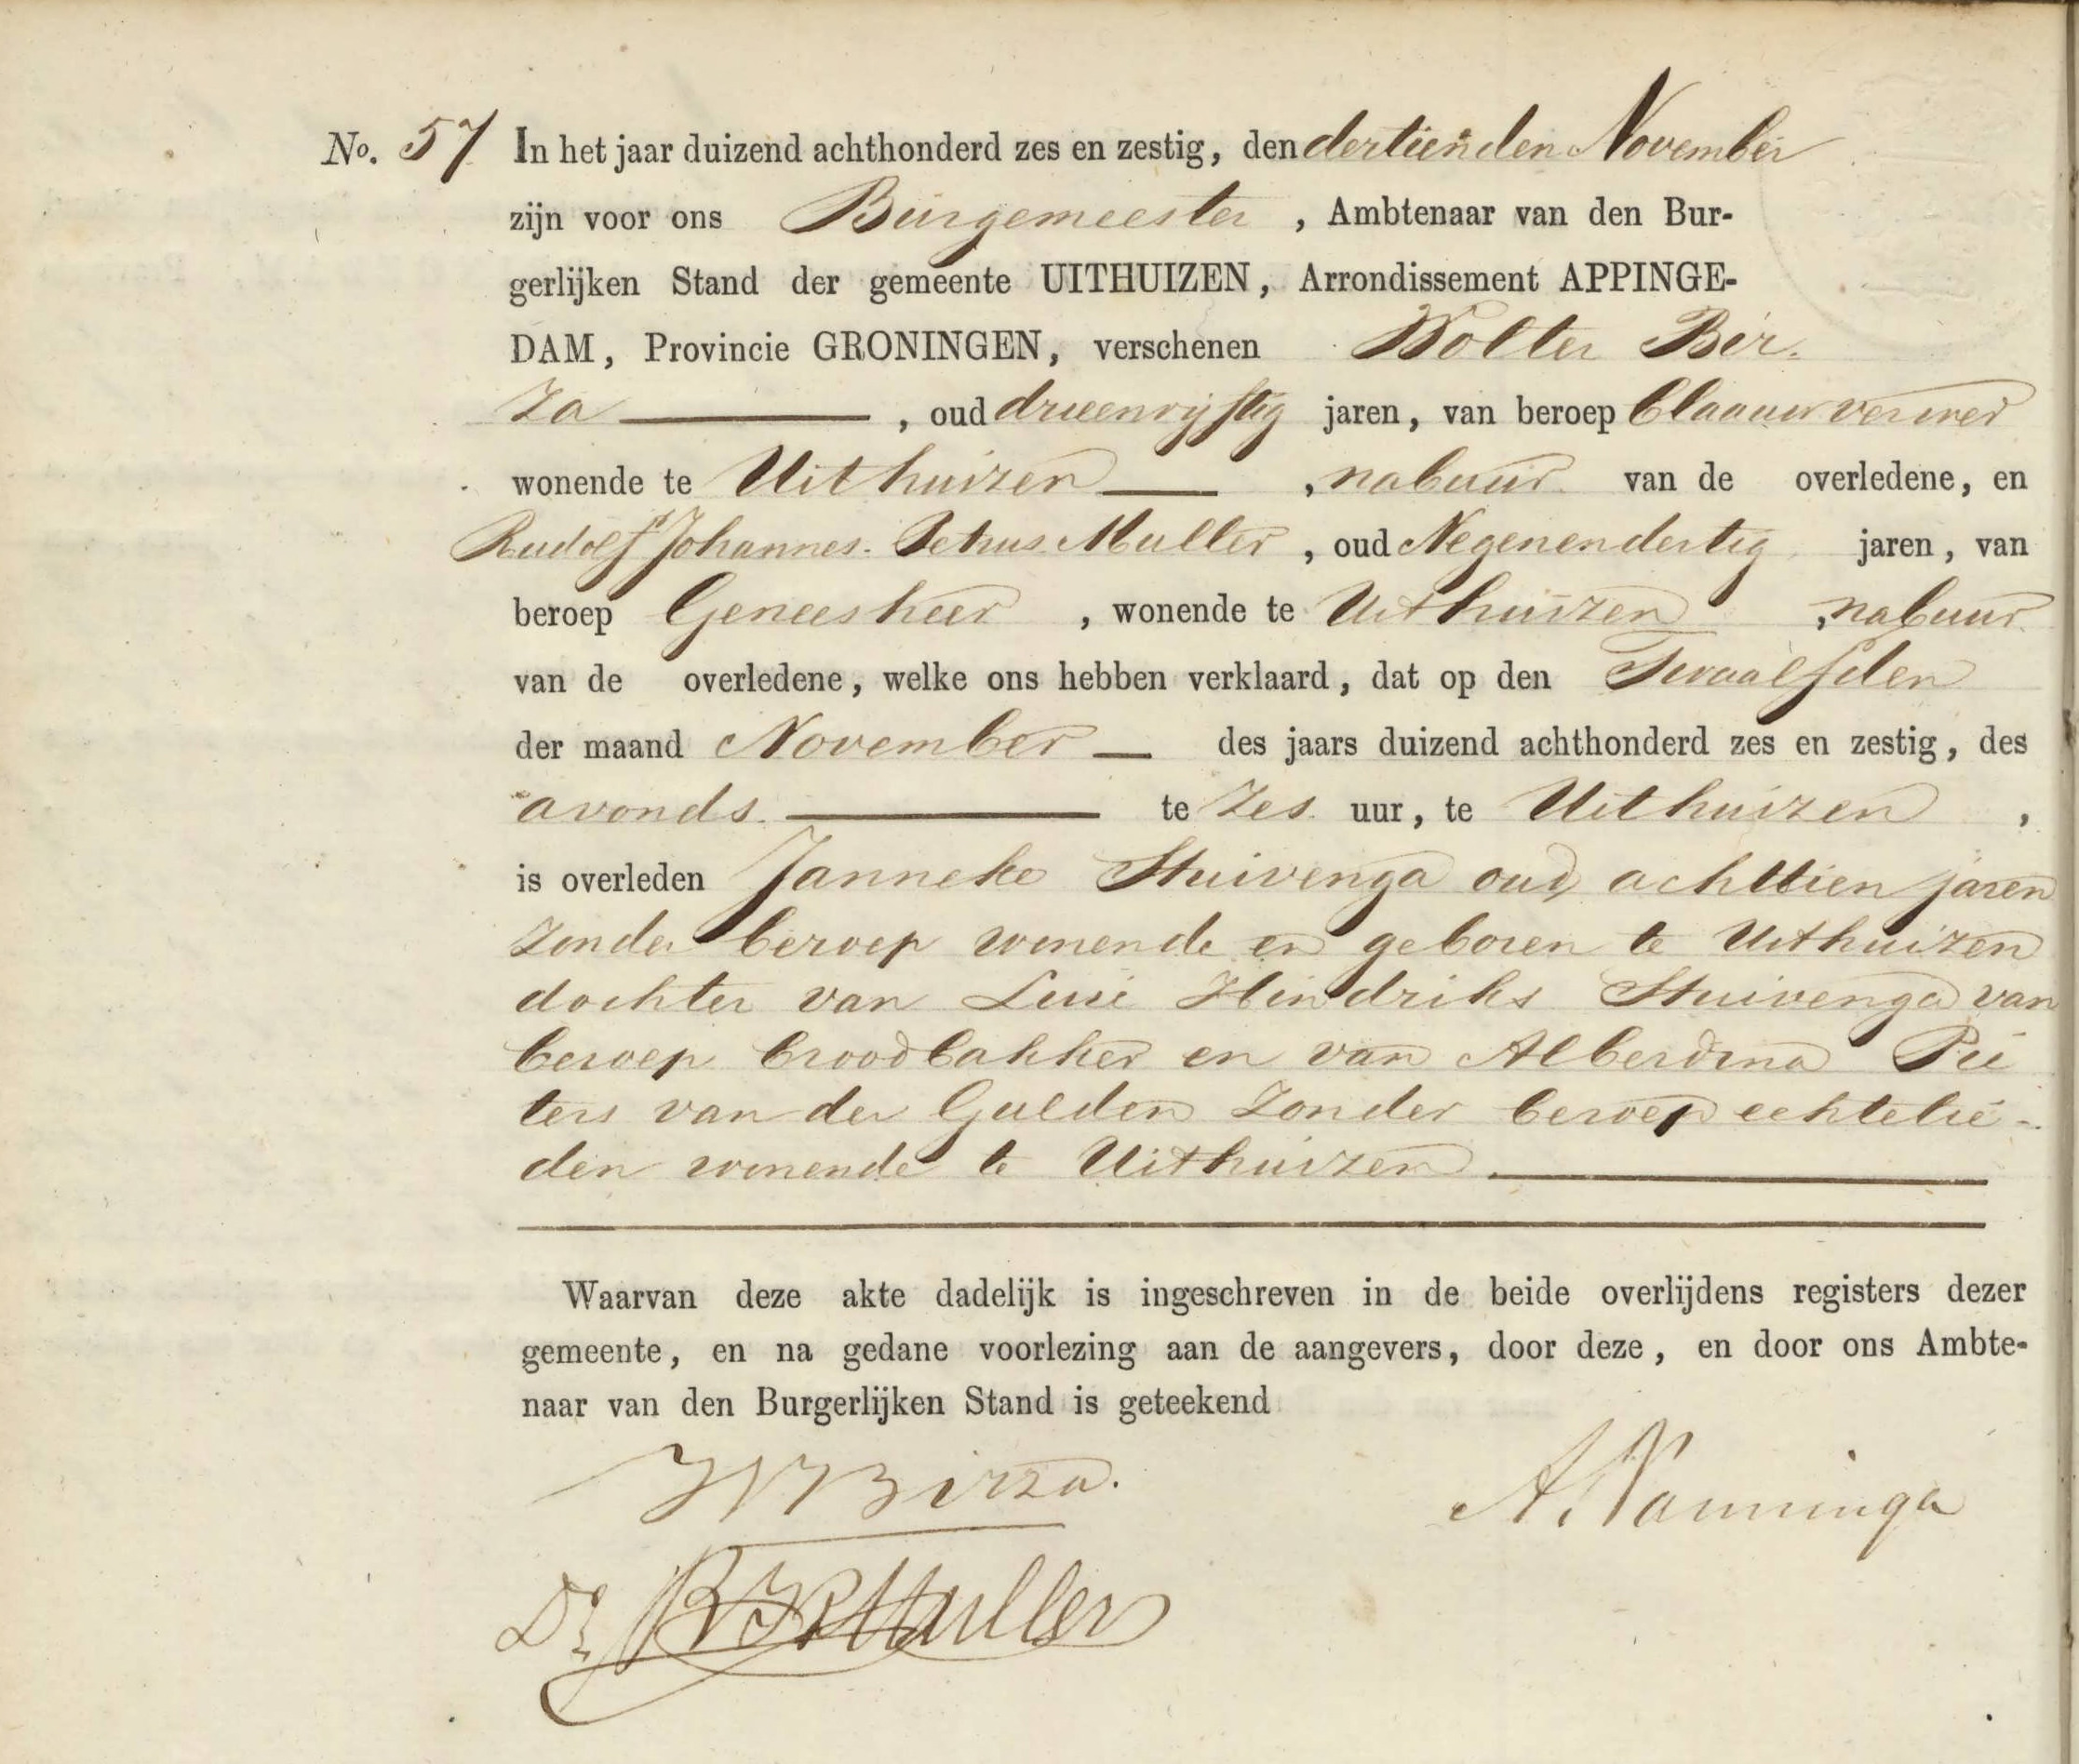 No. 57 In het jaar duizend achthonderd zes en zestig, den dertienden November
zijn voor ons Burgemeester , Ambtenaar van den Bur-
gerlijken Stand der gemeente UITHUIZEN, Arrondissement APPINGE-
DAM, Provincie GRONINGEN, verschenen Wolter Bir-
za , oud drieenvijftig jaren, van beroep blaauwverwer
wonende te Uithuizen , nabuur van de overledene, en
Rudolf Johannes Petrus Muller , oud Negenendertig jaren, van
beroep Geneesheer , wonende te Uithuizen , nabuur
van de overledene, welke ons hebben verklaard, dat op den Twaalfden
der maand November des jaars duizend achthonderd zes en zestig, des
avonds te zes uur, te Uithuizen ,
is overleden Janneke Stuivenga oud achttien jaren
zonder beroep wonende en geboren te Uithuizen
dochter van Luie Hindriks Stuivenga van
beroep broodbakker en van Alberdina Pie
ters van der Gulden zonder beroep echtelie-
den wonende te Uithuizen.
Waarvan deze akte dadelijk is ingeschreven in de beide overlijdens registers dezer
gemeente, en na gedane voorlezing aan de aangevers, door deze, en door ons Ambte-
naar van den Burgerlijken Stand is geteekend
W Birza.
A. Nanninga
Dr. R J P Muller